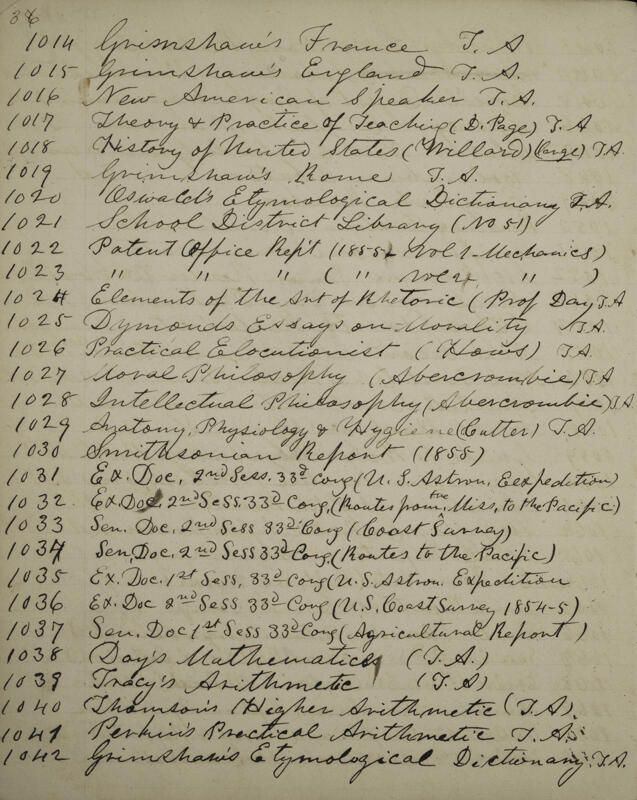 36
1014 Grimshaw's France T. A
1015 Grimshaw's England T. A.
1016 New American Speaker T. A.
1017 Theory & Practice of Teaching (D. Page) T. A
1018 History of United States (Willard) (large) T. A.
1019 Grimshaw's Rome T. A.
1020 Oswald's Etymological Dictionary T. A.
1021 School District Library (No 51)
1022 Patent Office Rep't (1855 - Vol 1 - Mechanics)
1023 " " " ( " vol 2 " )
1024 Elements of the Art of Rhetoric (Prof Day T. A
1025 Dymonds Essays on Morality T. A.
1026 Practical Elocutionist (Hows) T. A.
1027 Moral Philosophy (Abercrombie) T. A
1028 Intellectual Philosophy (Abercrombie) T. A.
1029 Anatomy, Physiology & Hygiene (Cutter) T. A.
1030 Smithsonian Report (1855)
1031 Ex. Doc, 2nd Sess. 33d Cong (U. S. Astron. Eexpedition)
1032 Ex. Doc. 2nd Sess. 33d Cong (Routes from the Miss. to the Pacific)
1033 Sen. Doc. 2nd Sess 33d Cong (Coast Survey)
1034 Sen. Doc. 2nd Sess 33d Cong (Routes to the Pacific)
1035 Ex. Doc. 1st Sess, 33d Cong (U. S. Astron. Expedition
1036 Ex. Doc 2nd Sess 33d Cong (U. S. Coast Survey 1854-5)
1037 Sen. Doc 1st Sess 33d Cong (Agricultural Report)
1038 Day's Mathematics (T. A.)
1039 Tracy's Arithmetic (T. A)
1040 Thomson's Higher Arithmetic (T. A).
1041 Perkin's Practical Arithmetic T. A.
1042 Grimshaw's Etymological Dictionary. T. A.